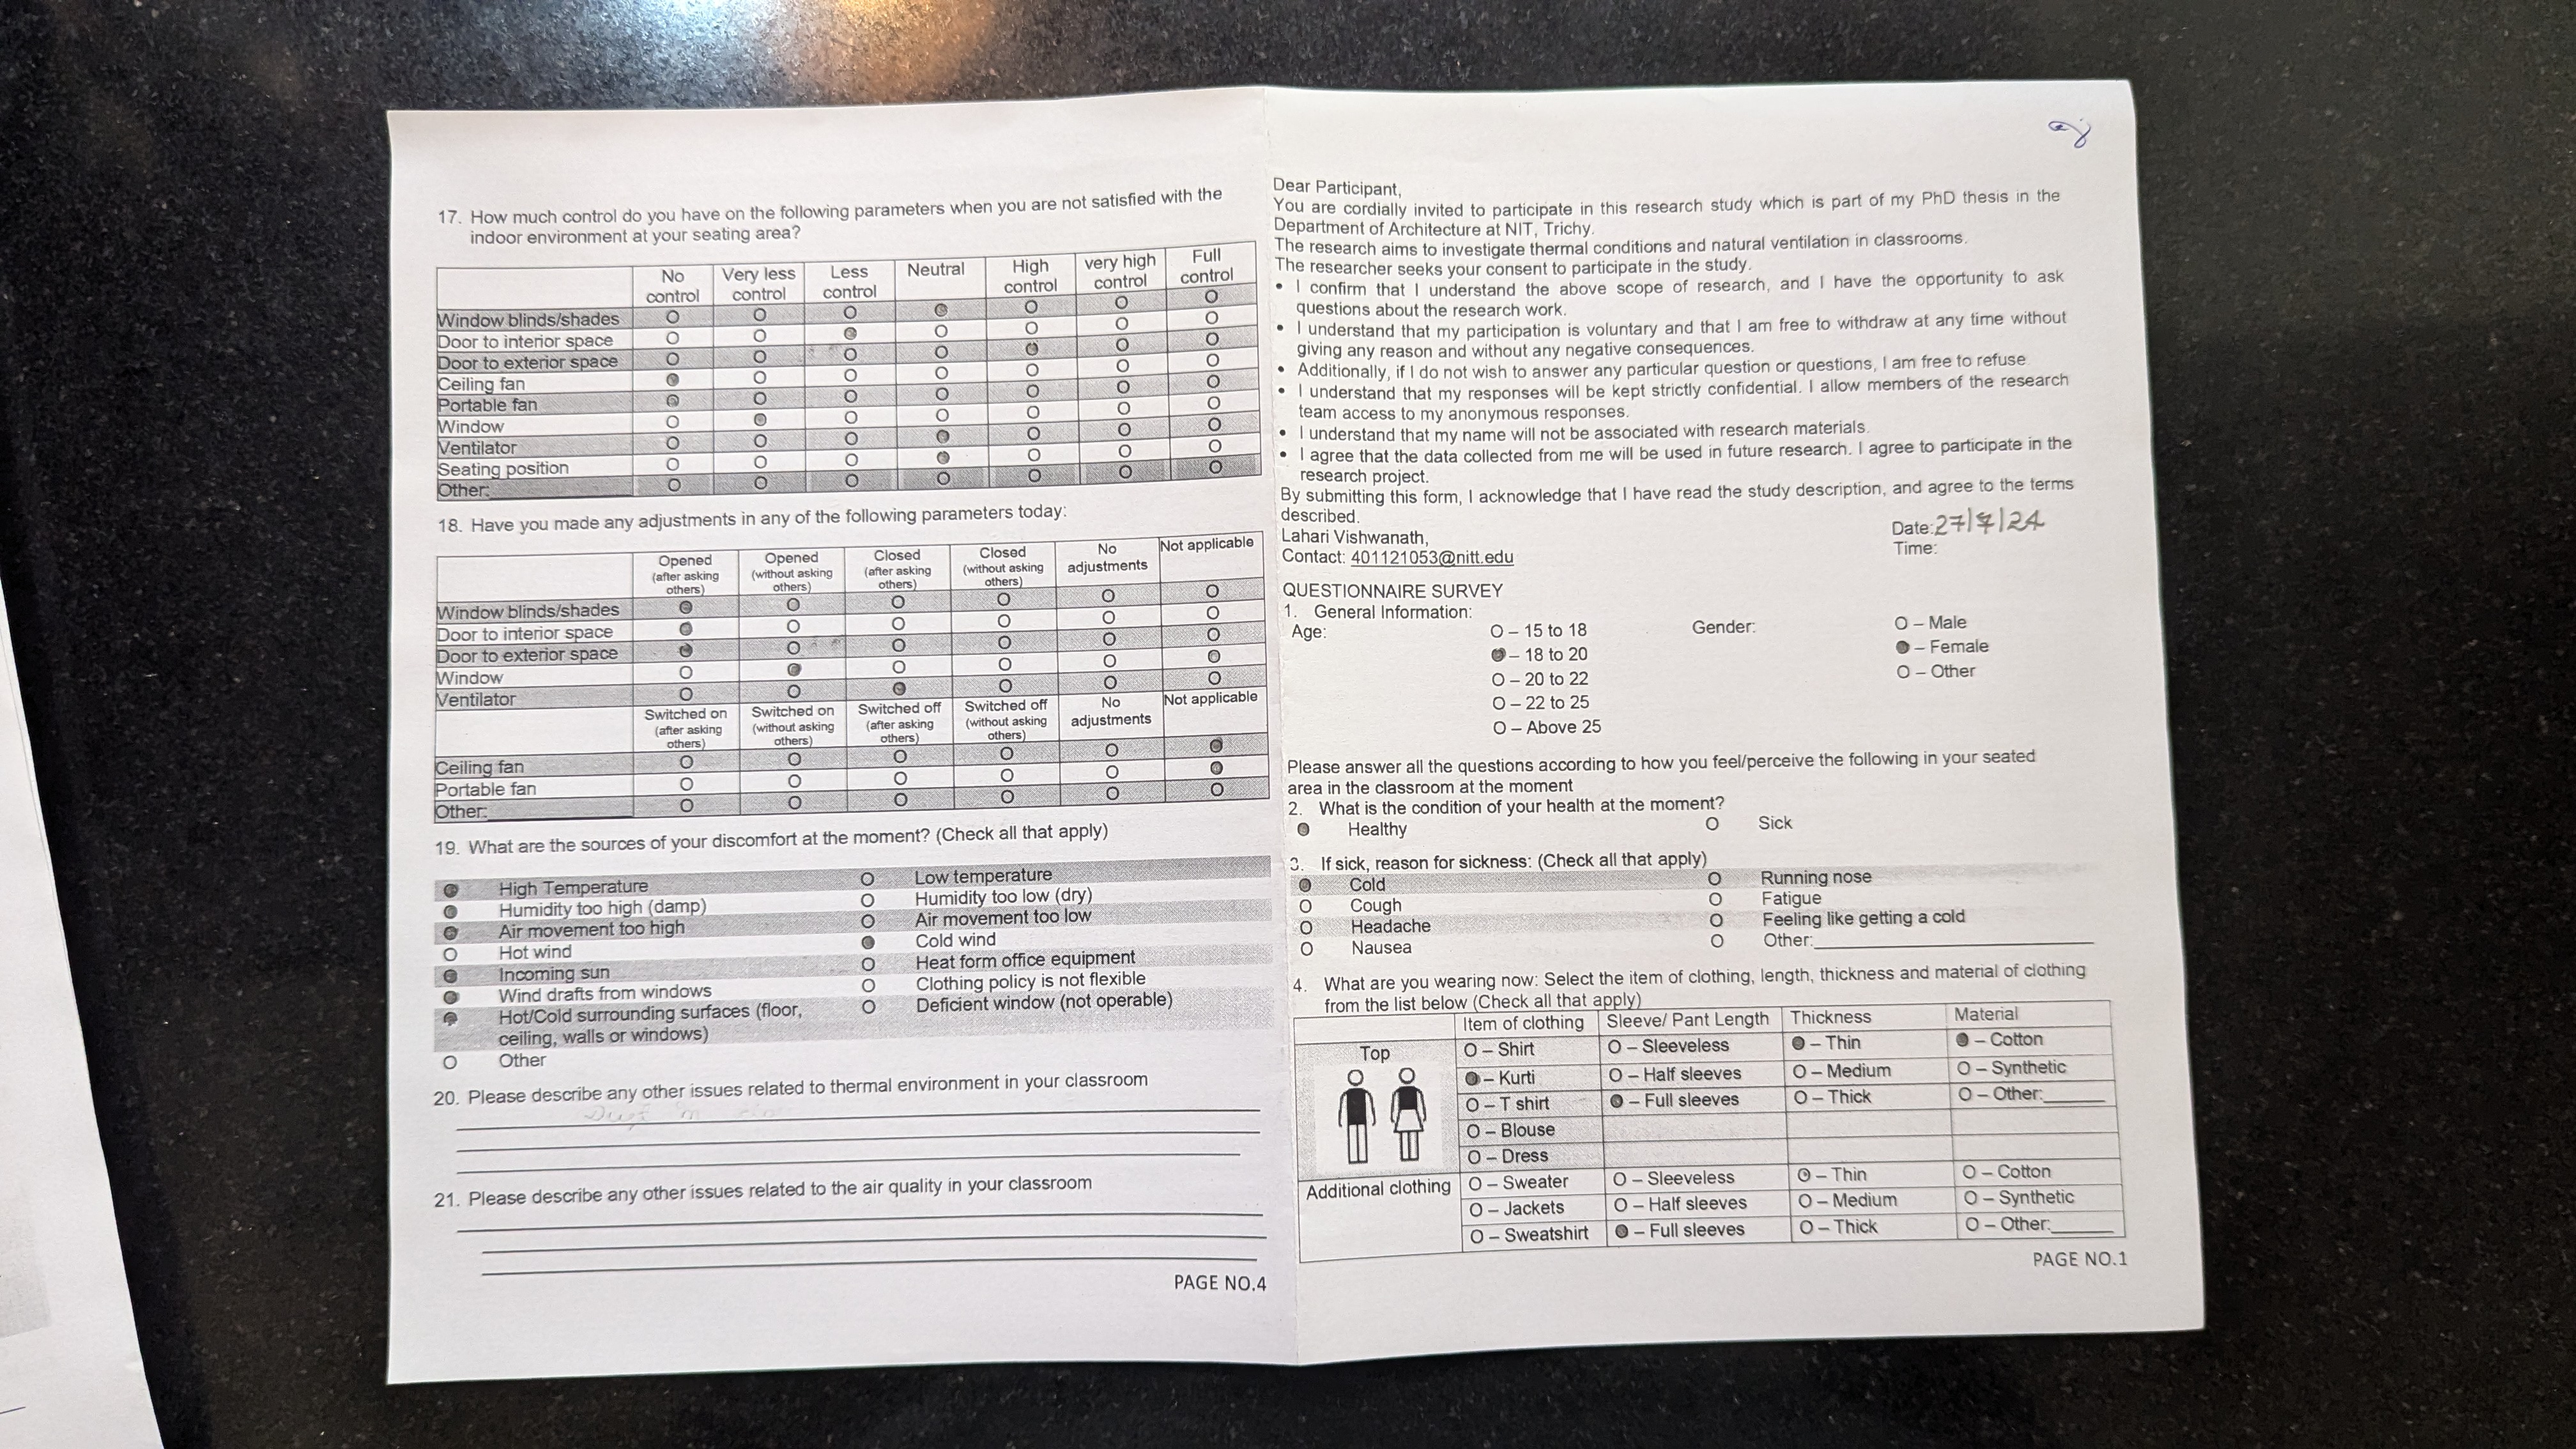 17. How much control do you have on the following parameters when you are not satisfied with the
indoor environment at your seating area?
No control Very less control Less control Neutral High control very high control Full control
Window blinds/shades O O O ● O O O
Door to interior space O O ● O O O O
Door to exterior space O O O O ● O O
Ceiling fan ● O O O O O O
Portable fan ● O O O O O O
Window O ● O O O O O
Ventilator O O O ● O O O
Seating position O O O ● O O O
Other: O O O O O O O
18. Have you made any adjustments in any of the following parameters today:
Opened (after asking others) Opened (without asking others) Closed (after asking others) Closed (without asking others) No adjustments Not applicable
Window blinds/shades ● O O O O O
Door to interior space ● O O O O O
Door to exterior space ● O O O O O
Window O ● O O O ●
Ventilator O O ● O O O
Switched on (after asking others) Switched on (without asking others) Switched off (after asking others) Switched off (without asking others) No adjustments Not applicable
Ceiling fan O O O O O ●
Portable fan O O O O O ●
Other: O O O O O O
19. What are the sources of your discomfort at the moment? (Check all that apply)
● High Temperature O Low temperature
● Humidity too high (damp) O Humidity too low (dry)
● Air movement too high O Air movement too low
O Hot wind ● Cold wind
● Incoming sun O Heat form office equipment
● Wind drafts from windows O Clothing policy is not flexible
● Hot/Cold surrounding surfaces (floor, O Deficient window (not operable)
ceiling, walls or windows)
O Other
20. Please describe any other issues related to thermal environment in your classroom
21. Please describe any other issues related to the air quality in your classroom
PAGE NO.4
Dear Participant,
You are cordially invited to participate in this research study which is part of my PhD thesis in the
Department of Architecture at NIT, Trichy.
The research aims to investigate thermal conditions and natural ventilation in classrooms.
The researcher seeks your consent to participate in the study.
• I confirm that I understand the above scope of research, and I have the opportunity to ask
questions about the research work.
• I understand that my participation is voluntary and that I am free to withdraw at any time without
giving any reason and without any negative consequences.
• Additionally, if I do not wish to answer any particular question or questions, I am free to refuse
• I understand that my responses will be kept strictly confidential. I allow members of the research
team access to my anonymous responses.
• I understand that my name will not be associated with research materials.
• I agree that the data collected from me will be used in future research. I agree to participate in the
research project.
By submitting this form, I acknowledge that I have read the study description, and agree to the terms
described.
Lahari Vishwanath,
Contact: 401121053@nitt.edu
Date: 27/7/24
Time:
QUESTIONNAIRE SURVEY
1. General Information:
Age: O – 15 to 18 Gender: O – Male
● – 18 to 20 ● – Female
O – 20 to 22 O – Other
O – 22 to 25
O – Above 25
Please answer all the questions according to how you feel/perceive the following in your seated
area in the classroom at the moment
2. What is the condition of your health at the moment?
● Healthy O Sick
3. If sick, reason for sickness: (Check all that apply)
● Cold O Running nose
O Cough O Fatigue
O Headache O Feeling like getting a cold
O Nausea O Other:
4. What are you wearing now: Select the item of clothing, length, thickness and material of clothing
from the list below (Check all that apply)
Item of clothing Sleeve/ Pant Length Thickness Material
Top O – Shirt O – Sleeveless ● – Thin ● – Cotton
● – Kurti O – Half sleeves O – Medium O – Synthetic
O – T shirt ● – Full sleeves O – Thick O – Other:
O – Blouse
O – Dress
Additional clothing O – Sweater O – Sleeveless O – Thin O – Cotton
O – Jackets O – Half sleeves O – Medium O – Synthetic
O – Sweatshirt ● – Full sleeves O – Thick O – Other:
PAGE NO.1